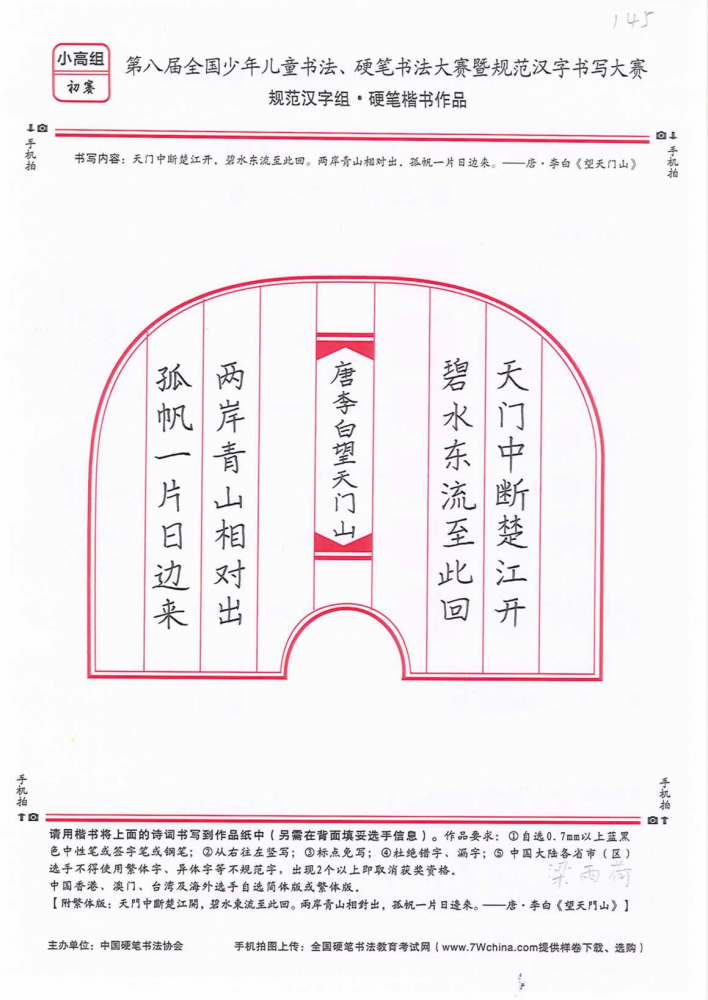 145
小高组
初赛
第八届全国少年儿童书法、硬笔书法大赛暨规范汉字书写大赛
规范汉字组·硬笔楷书作品
手机拍
手机拍
书写内容：天门中断楚江开，碧水东流至此回。两岸青山相对出，孤帆一片日边来。——唐·李白《望天门山》
天门中断楚江开
碧水东流至此回
唐李白望天门山
两岸青山相对出
孤帆一片日边来
手机拍
手机拍
请用楷书将上面的诗词书写到作品纸中（另需在背面填妥选手信息）。作品要求：①自选0.7mm以上蓝黑
色中性笔或签字笔或钢笔；②从右往左竖写；③标点免写；④杜绝错字、漏字；⑤ 中国大陆各省市（区）
选手不得使用繁体字、异体字等不规范字，出现2个以上即取消获奖资格。
梁雨荷
中国香港、澳门、台湾及海外选手自选简体版或繁体版。
【附繁体版：天門中斷楚江開，碧水東流至此回。兩岸青山相對出，孤帆一片日邊來。——唐·李白《望天門山》】
主办单位：中国硬笔书法协会
手机拍图上传：全国硬笔书法教育考试网（www.7Wchina.com提供样卷下载、选购）